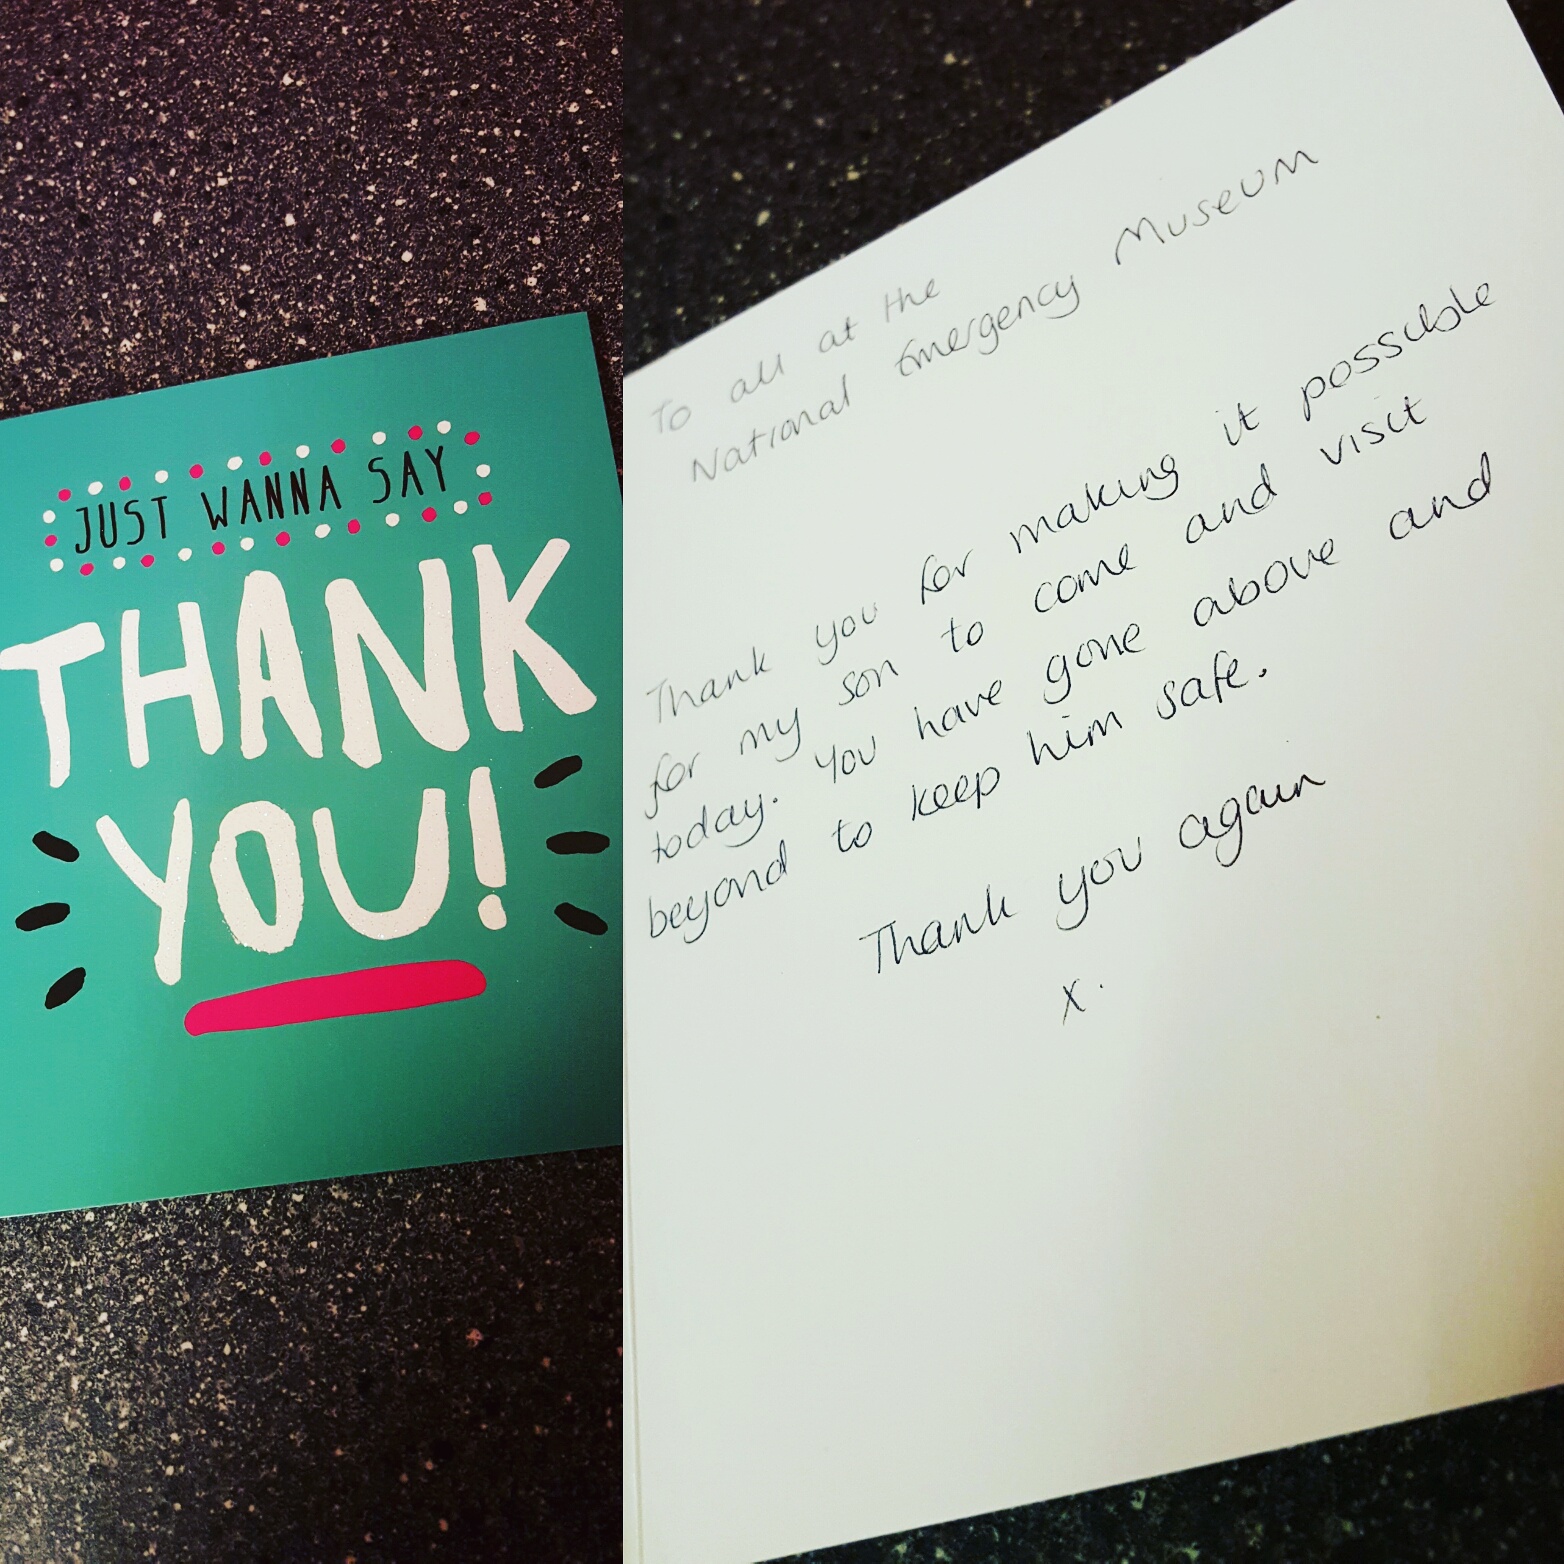 JUST WANNA SAY
THANK
YOU!
To all at the
National Emergency Museum
Thank you for making it possible
for my son to come and visit
today. You have gone above and
beyond to keep him safe.
Thank you again
x.